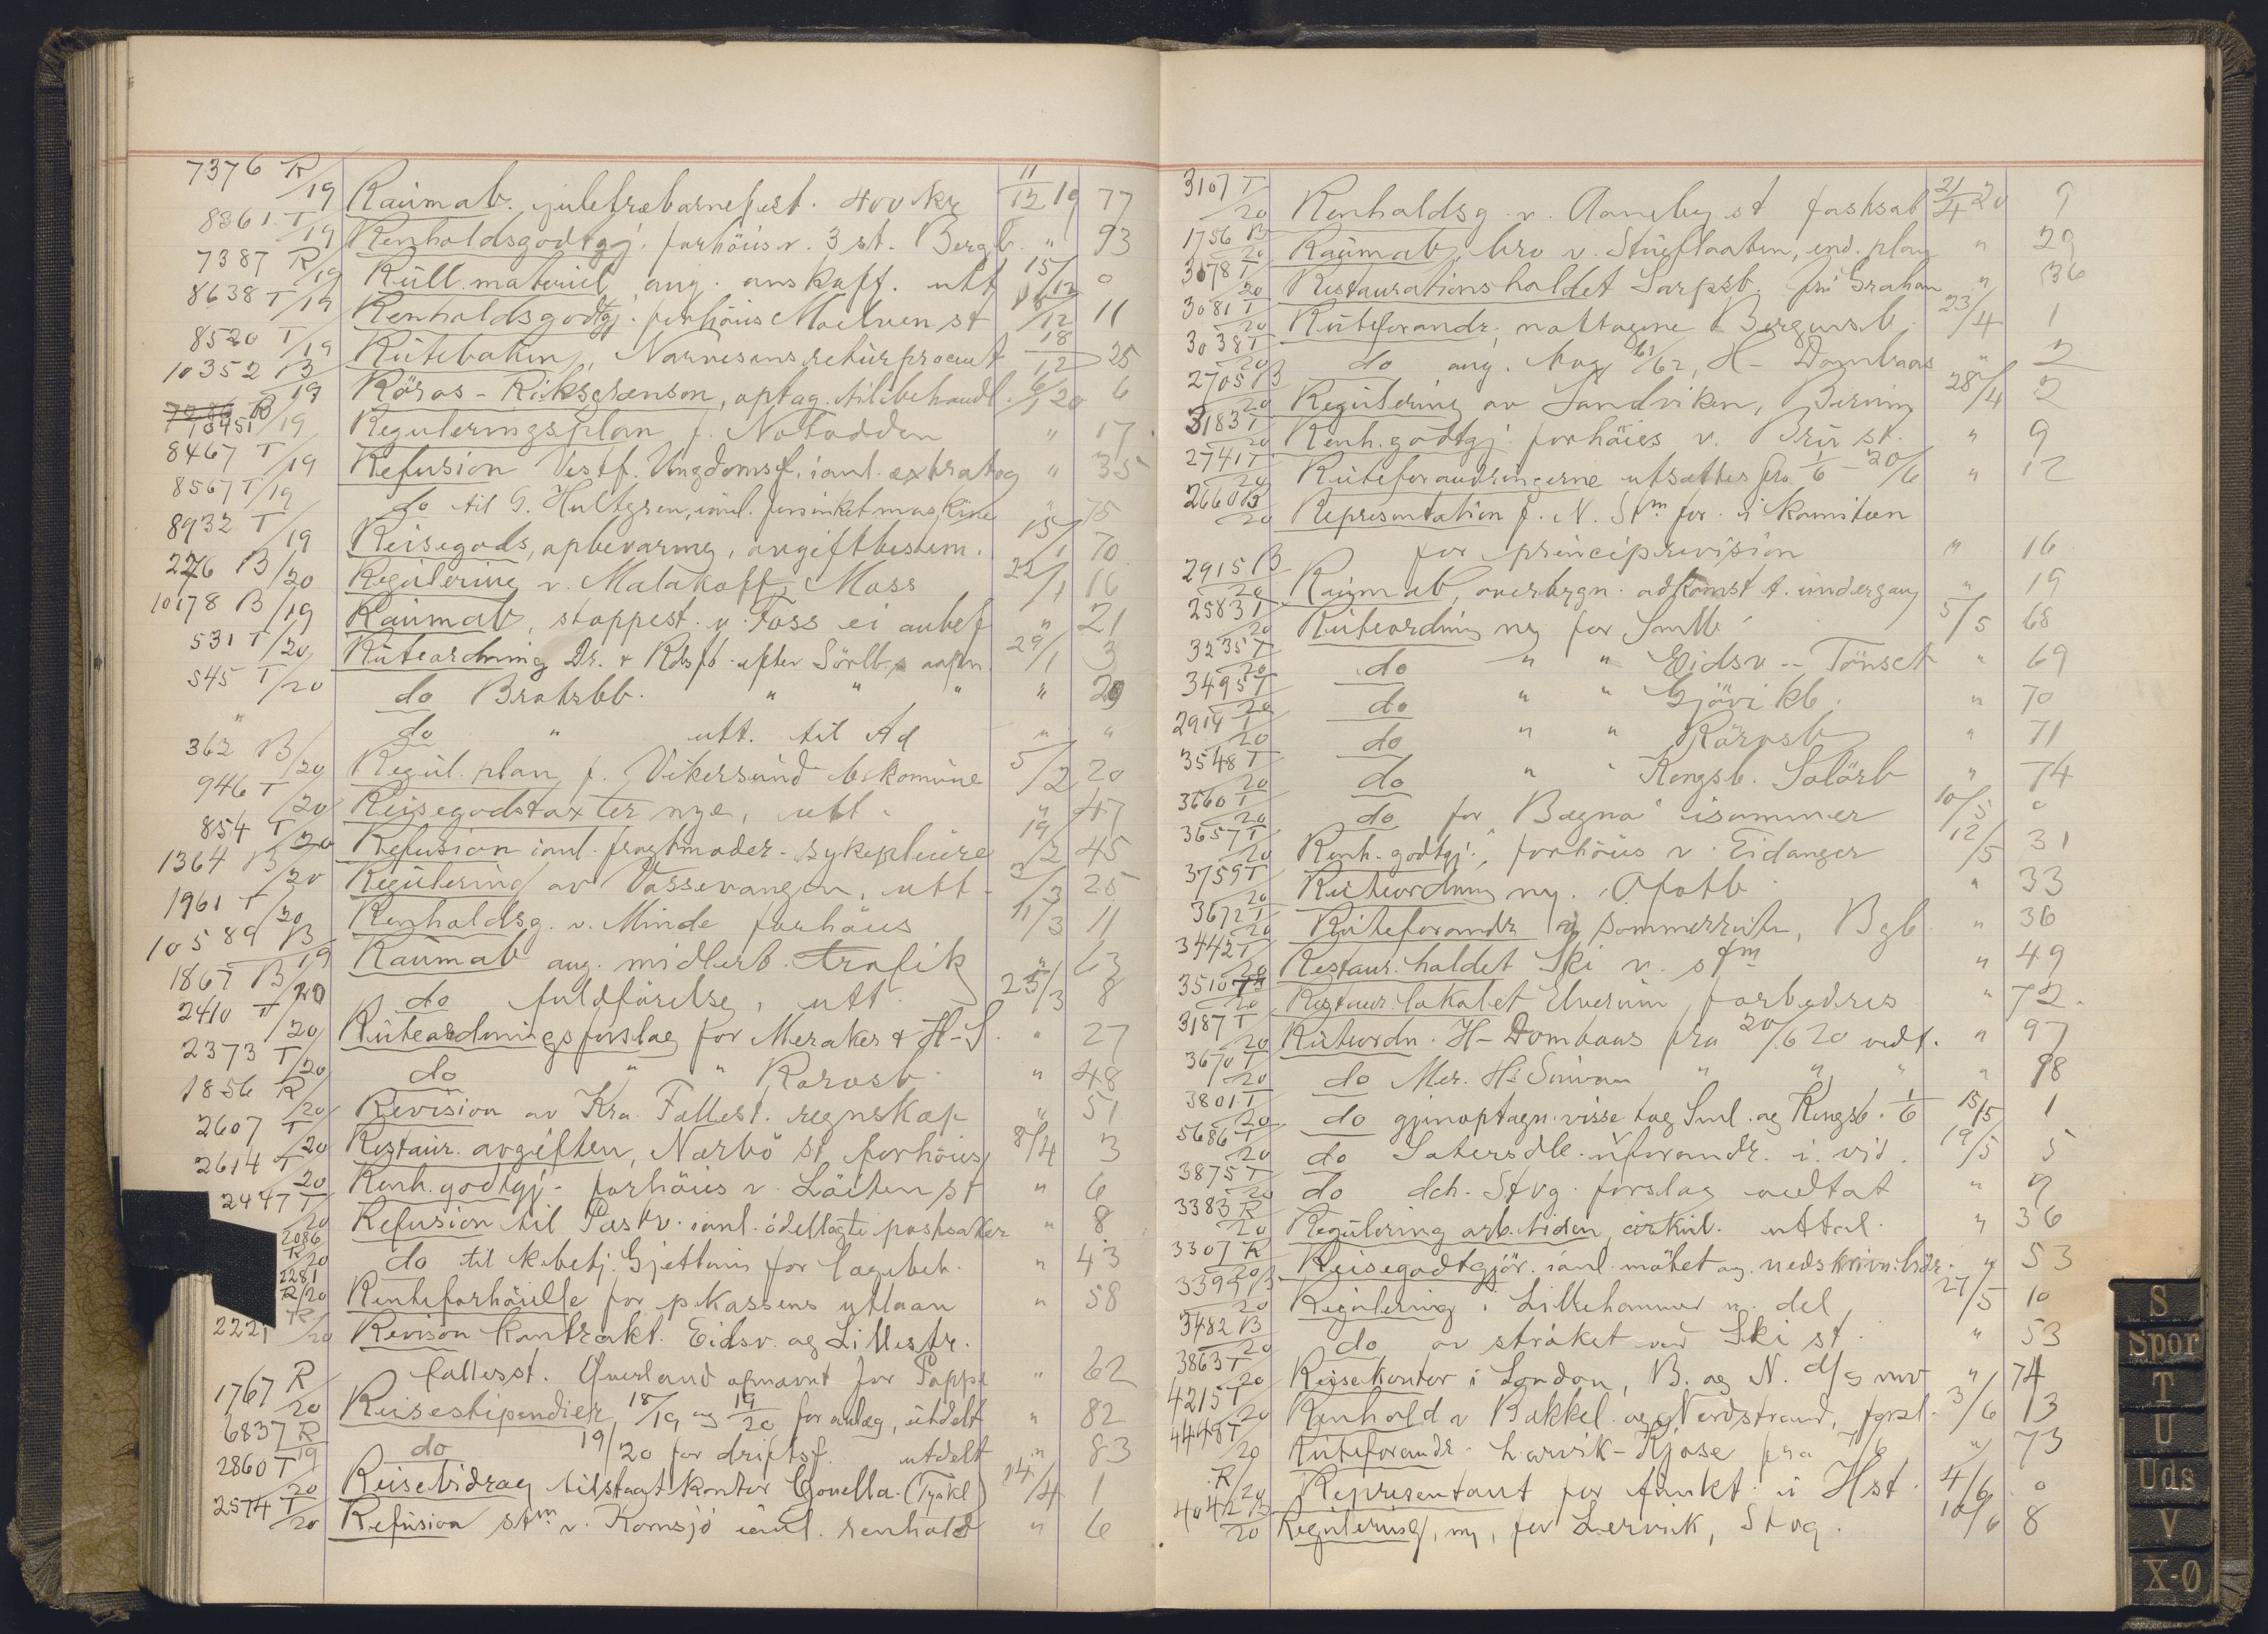 7376 R/19 Raumab. juletræbarnefest. 400 kr 11/12 19 77
8361 T/19 Renholdsgodtgj. forhöies v. 3 st. Bergb. " 93
7387 R/19 Rull. materiel ang. anskaff. utt 15/12 0
8638 T/19 Renholdsgodtgj. forhöies Moelven st 15/12 11
8520 T/19 Rutebaken, 18/12 25
10352 B/19 Röros - Riksgrænsen, optag. til behandl. 6/1 20 6
10451/19 Reguleringsplan f. Notodden " 17
8467 T/19 Refusion Vestf. Ungdomsf. ianl. extratog " 35
8567 T/19 do til G. Hultgren, ianl. forsinket maskine " 75
8932 T/19 Reisegods, opbevaring, avgiftbestem. 15/1 70
226 B/20 Regulering v. Malakoff, Moss 22/1 16
10178 B/19 Raumab, stoppest. v. Foss ei anbef " 21
531 T/20 Ruteordning Dr. & Rdsfb. efter Sörlb.s aapn. 29/1 3
545 T/20 do Bratsbb. " " " " 29
" do " utt. til Ad " "
362 B/20 Regul. plan f. Vikersund bs komune 5/2 20
946 T/20 Reisegodstaxter nye, utt. " 47
854 T/20 Refusion ianl. fragtmoder. sykepleiere 19/2 45
1364 B/20 Regulering av Vossevangen, utt. 3/3 25
1961 T/20 Renholdsg. v. Minde forhöies 11/3 11
10589 B/19 Raumab ang. midlerb. trafik " 63
1867 B/20 do fuldförelse, utt. 25/3 8
2410 T/20 Ruteordningsforslag for Meraker & H-S. " 27
2373 T/20 do " " Rörosb. " 48
1856 R/20 Revision av Kra. Fellesst. regnskap " 51
2607 T/20 Restaur. avgiften, Nærbö st forhöies 8/4 3
2614 T/20 Renh. godtgj. forhöies v. Löiten st " 6
2447 T/20 Refusion til Postv. ianl. ödelagte postsaker " 8
2086 R/20 do til k.betj. Gjettum for lægebeh. " 43
2281 R/20 Renteforhöielse for p.kassens utlaan " 58
2221 R/20 Revison kontrakt. Eidsv. og Lillestr.
fellesst. Overland opnævnt for Poppe " 62
1767 R/20 Reisestipendier 18/19 og 19/20 for anlæg, utdelt " 82
6837 R/19 do 19/20 for driftsf. utdelt " 83
2860 T/20 Reisebidrag tilstaat kontor Gonella (Tyskl) 14/4 1
2574 T/20 Refusion stm v. Kornsjö ianl. renhold " 6
3107 T/20 Renholdsg. v. Aaneby st fastsat 21/4 20 9
1756 B/20 Raumab, bro v. Stuflaaten, end. plan " 29
3078 T/20 Restaurationsholdet Sarpsb. fru Grahan " 36
3081 T/20 Ruteforandr. nattogene Bergensb. 23/4 1
3038 T/20 do ang. tog 61/62, H - Dombaas " 2
2705 B/20 Regulering av Sandviken, Bærum 28/4 2
3183 T/20 Renh. godtgj. forhöies v. Bru st. " 9
2741 T/20 Ruteforandringerne utsættes fra 1/6 - 20/6 " 12
2660 B/20 Representation f. N. Stm for. i komiteen
for principrevision " 16
2915 B/20 Raumab, overbygn. adkomst t. undergang " 19
2583 T/20 Ruteordning ny for Smlb. 5/5 68
3235 T/20 do " " Eidsv - Tönset " 69
3495 T/20 do " " Gjövikb. " 70
2914 T/20 do " " Rörosb " 71
3548 T/20 do " " Kongsv. Solörb " 74
3660 T/20 do for "Bægna" isommer 10/5 0
3657 T/20 Renh. godtgj., forhöies v. Eidanger 12/5 31
3759 T/20 Ruteordning ny. Ofotb. " 33
3672 T/20 Ruteforandr i sommerruten, Bgb. " 36
3442 T/20 Restaur. holdet Ski v. stm " 49
3510 T/20 Restaur. lokalet Elverum, forbedres " 72.
3187 T/20 Ruteordn. H - Dombaas fra 20/6 20 vedt. " 97
3670 T/20 do Mer. H-Sunnan " " " " 98
3801 T/20 do gjenoptagn. visse tog Sml. og Kongsb. 1/6 15/5 1
5686 T/20 do Setersdb. uforandr. i. vid. 19/5 5
3875 T/20 do dch. Stvg. forslag vedtat " 9
3383 R/20 Regulering arb. tiden, cirkul. uttal. " 36
3307 R/20 Reisegodtgjör. ianl. mötet ang. nedskrivn. bidr. " 53
3399 B/20 Regulering i Lillehammer n. del 27/5 10
3482 B/20 do av ströket ved Ski st. " 53
3863 T/20 Reisekontor i London, B. og N. d/s mv " 74
4215 T/20 Renhold v Bækkel. og Nordstrand, forsl. 3/6 13
4448 T/20 Ruteforandr. Larvik - Kjose fra 7/6 " 73
R/20 Representant for funkt. i Hst. 4/6 0
4042 B/20 Regulering, ny, for Lervik, Stvg. 10/6 8
S
Spor
T
U
Uds
V
X-Ø